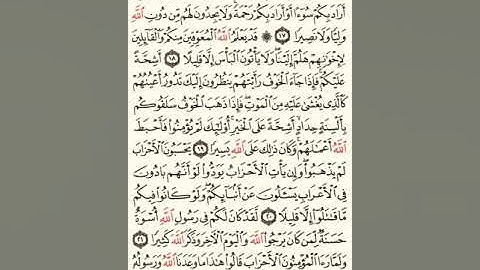 أَرَادَ بِكُمْ سُوٓءًا أَوْ أَرَادَ بِكُمْ رَحْمَةً وَلَا يَجِدُونَ لَهُم مِّن دُونِ ٱللَّهِ
وَلِيًّا وَلَا نَصِيرًا ١٧ ۞ قَدْ يَعْلَمُ ٱللَّهُ ٱلْمُعَوِّقِينَ مِنكُمْ وَٱلْقَآئِلِينَ
لِإِخْوَٰنِهِمْ هَلُمَّ إِلَيْنَا ۖ وَلَا يَأْتُونَ ٱلْبَأْسَ إِلَّا قَلِيلًا ١٨ أَشِحَّةً
عَلَيْكُمْ ۖ فَإِذَا جَآءَ ٱلْخَوْفُ رَأَيْتَهُمْ يَنظُرُونَ إِلَيْكَ تَدُورُ أَعْيُنُهُمْ
كَٱلَّذِى يُغْشَىٰ عَلَيْهِ مِنَ ٱلْمَوْتِ ۖ فَإِذَا ذَهَبَ ٱلْخَوْفُ سَلَقُوكُم
بِأَلْسِنَةٍ حِدَادٍ أَشِحَّةً عَلَى ٱلْخَيْرِ ۚ أُو۟لَٰٓئِكَ لَمْ يُؤْمِنُوا۟ فَأَحْبَطَ
ٱللَّهُ أَعْمَٰلَهُمْ ۚ وَكَانَ ذَٰلِكَ عَلَى ٱللَّهِ يَسِيرًا ١٩ يَحْسَبُونَ ٱلْأَحْزَابَ
لَمْ يَذْهَبُوا۟ ۖ وَإِن يَأْتِ ٱلْأَحْزَابُ يَوَدُّوا۟ لَوْ أَنَّهُم بَادُونَ
فِى ٱلْأَعْرَابِ يَسْـَٔلُونَ عَنْ أَنۢبَآئِكُمْ ۖ وَلَوْ كَانُوا۟ فِيكُم
مَّا قَٰتَلُوٓا۟ إِلَّا قَلِيلًا ٢٠ لَّقَدْ كَانَ لَكُمْ فِى رَسُولِ ٱللَّهِ أُسْوَةٌ
حَسَنَةٌ لِّمَن كَانَ يَرْجُوا۟ ٱللَّهَ وَٱلْيَوْمَ ٱلْءَاخِرَ وَذَكَرَ ٱللَّهَ كَثِيرًا ٢١
وَلَمَّا رَءَا ٱلْمُؤْمِنُونَ ٱلْأَحْزَابَ قَالُوا۟ هَٰذَا مَا وَعَدَنَا ٱللَّهُ وَرَسُولُهُۥ